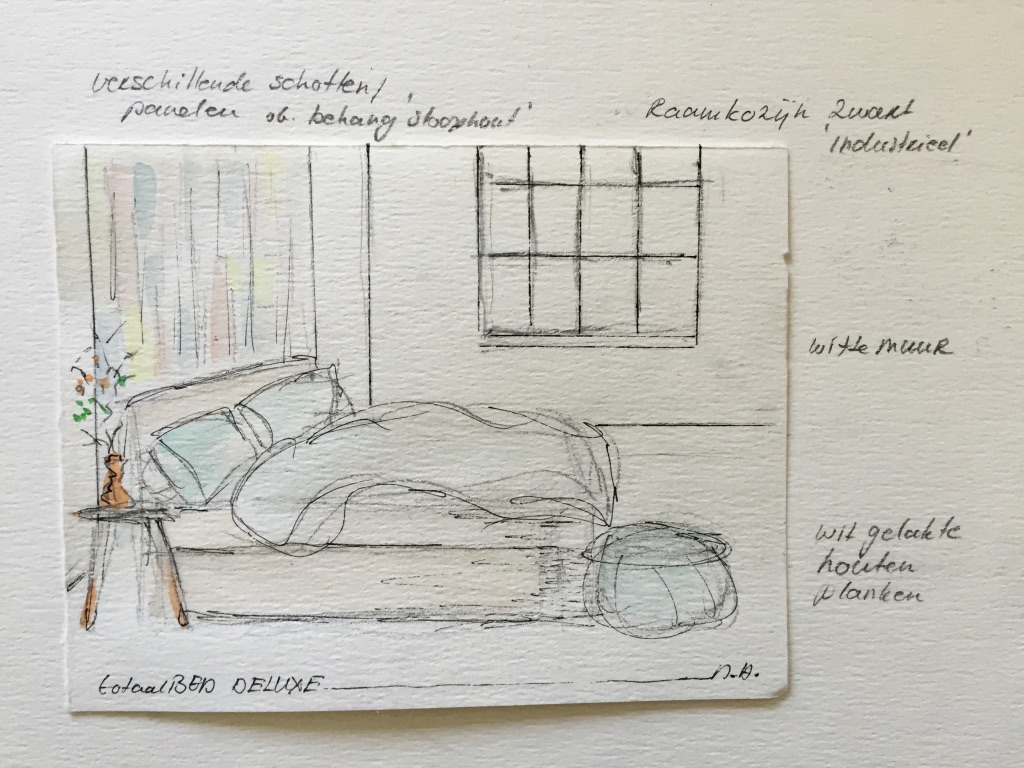 verschillende schotten/
panelen ob. behang 'sloophout'
Raamkozijn zwart
'industrieel'
witte muur
wit gelakte
houten
planken
totaalBED DELUXE
D.A.